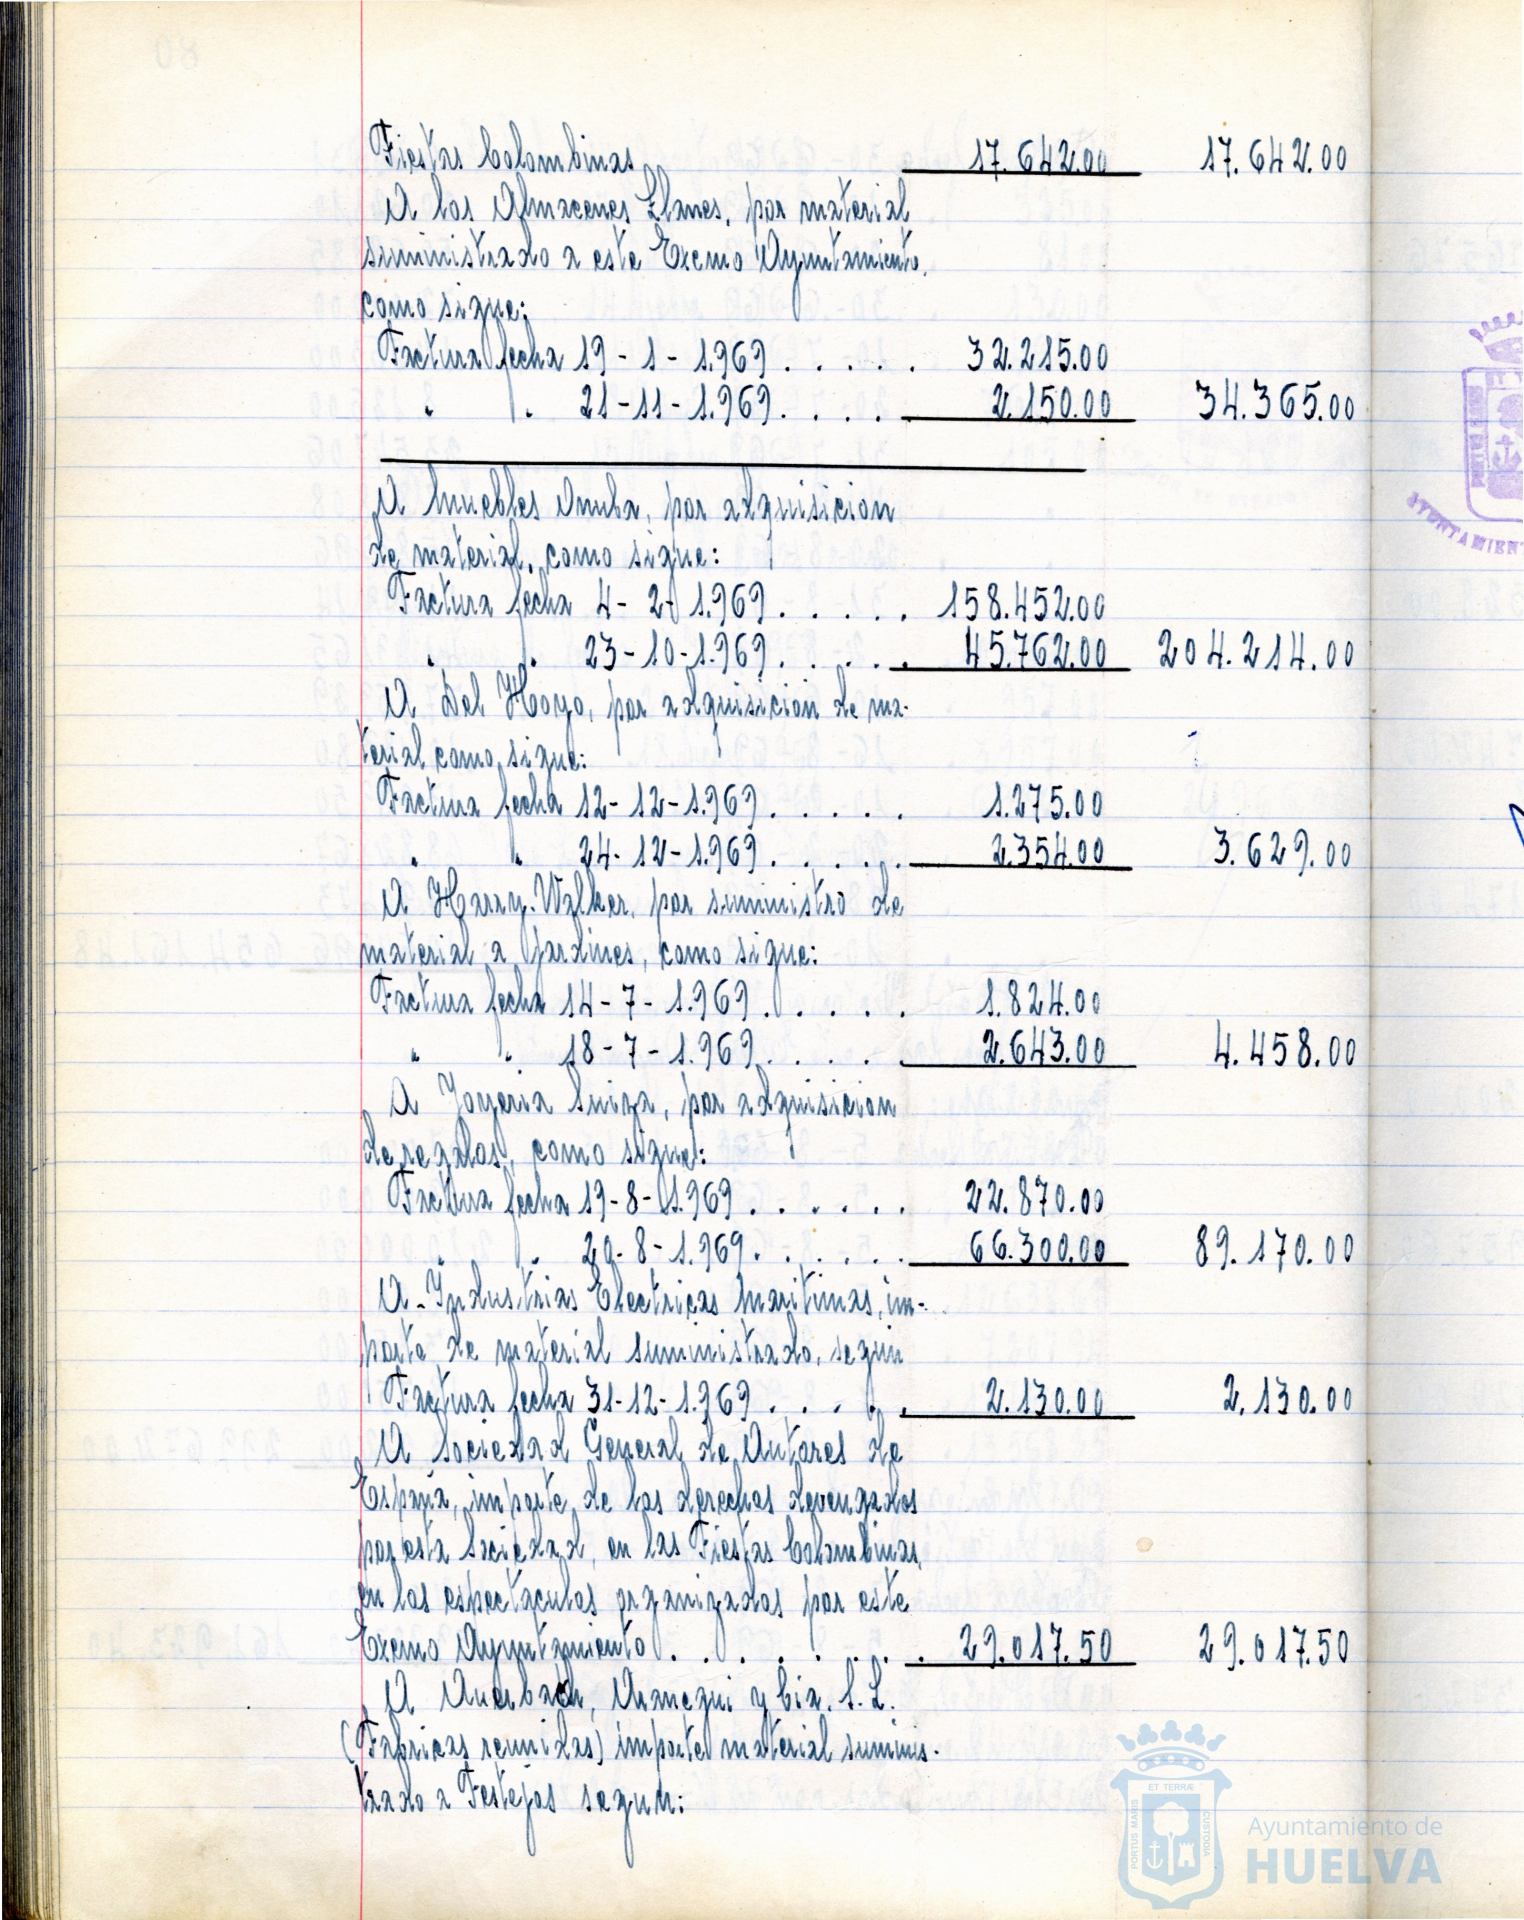 Fiestas Colombinas 17.642.00 17.642.00
A los Almacenes Llanes, por material
suministrado a este Excmo Ayuntamiento,
como sigue:
Factura fecha 19-1-1.969..... 32.215.00
" " 21-11-1.969.... 2.150.00 34.365.00
A Muebles Onuba, por adquisicion
de material, como sigue:
Factura fecha 4-2-1.969..... 158.452.00
" " 23-10-1.969..... 45.762.00 204.214.00
A Del Hoyo, por adquisicion de ma-
terial como sigue:
Factura fecha 12-12-1.969..... 1.275.00
" " 24-12-1.969..... 2.354.00 3.629.00
A Harry-Walker, por suministro de
material a Jardines, como sigue:
Factura fecha 14-7-1.969..... 1.824.00
" " 18-7-1.969.... 2.643.00 4.458.00
A Joyeria Suiza, por adquisicion
de regalos, como sigue:
Factura fecha 19-8-1.969...... 22.870.00
" " 20-8-1.969...... 66.300.00 89.170.00
A-Industrias Electricas Maritimas, im-
porte de material suministrado, segun
Factura fecha 31-12-1.969..... 2.130.00 2.130.00
A Sociedad General de Autores de
España, importe de los derechos devengados
por esta Sociedad, en las Fiestas Colombinas,
en los espectaculos organizados por este
Excmo Ayuntamiento........ 29.017.50 29.017.50
A Auerbach, Aranegui y Cia. S. L.
(Fabricas reunidas) importe material suminis-
trado a Festejos segun:
AYUNTAMIEN
PORTUS MARIS
ET TERRÆ
CUSTODIA
Ayuntamiento de
HUELVA